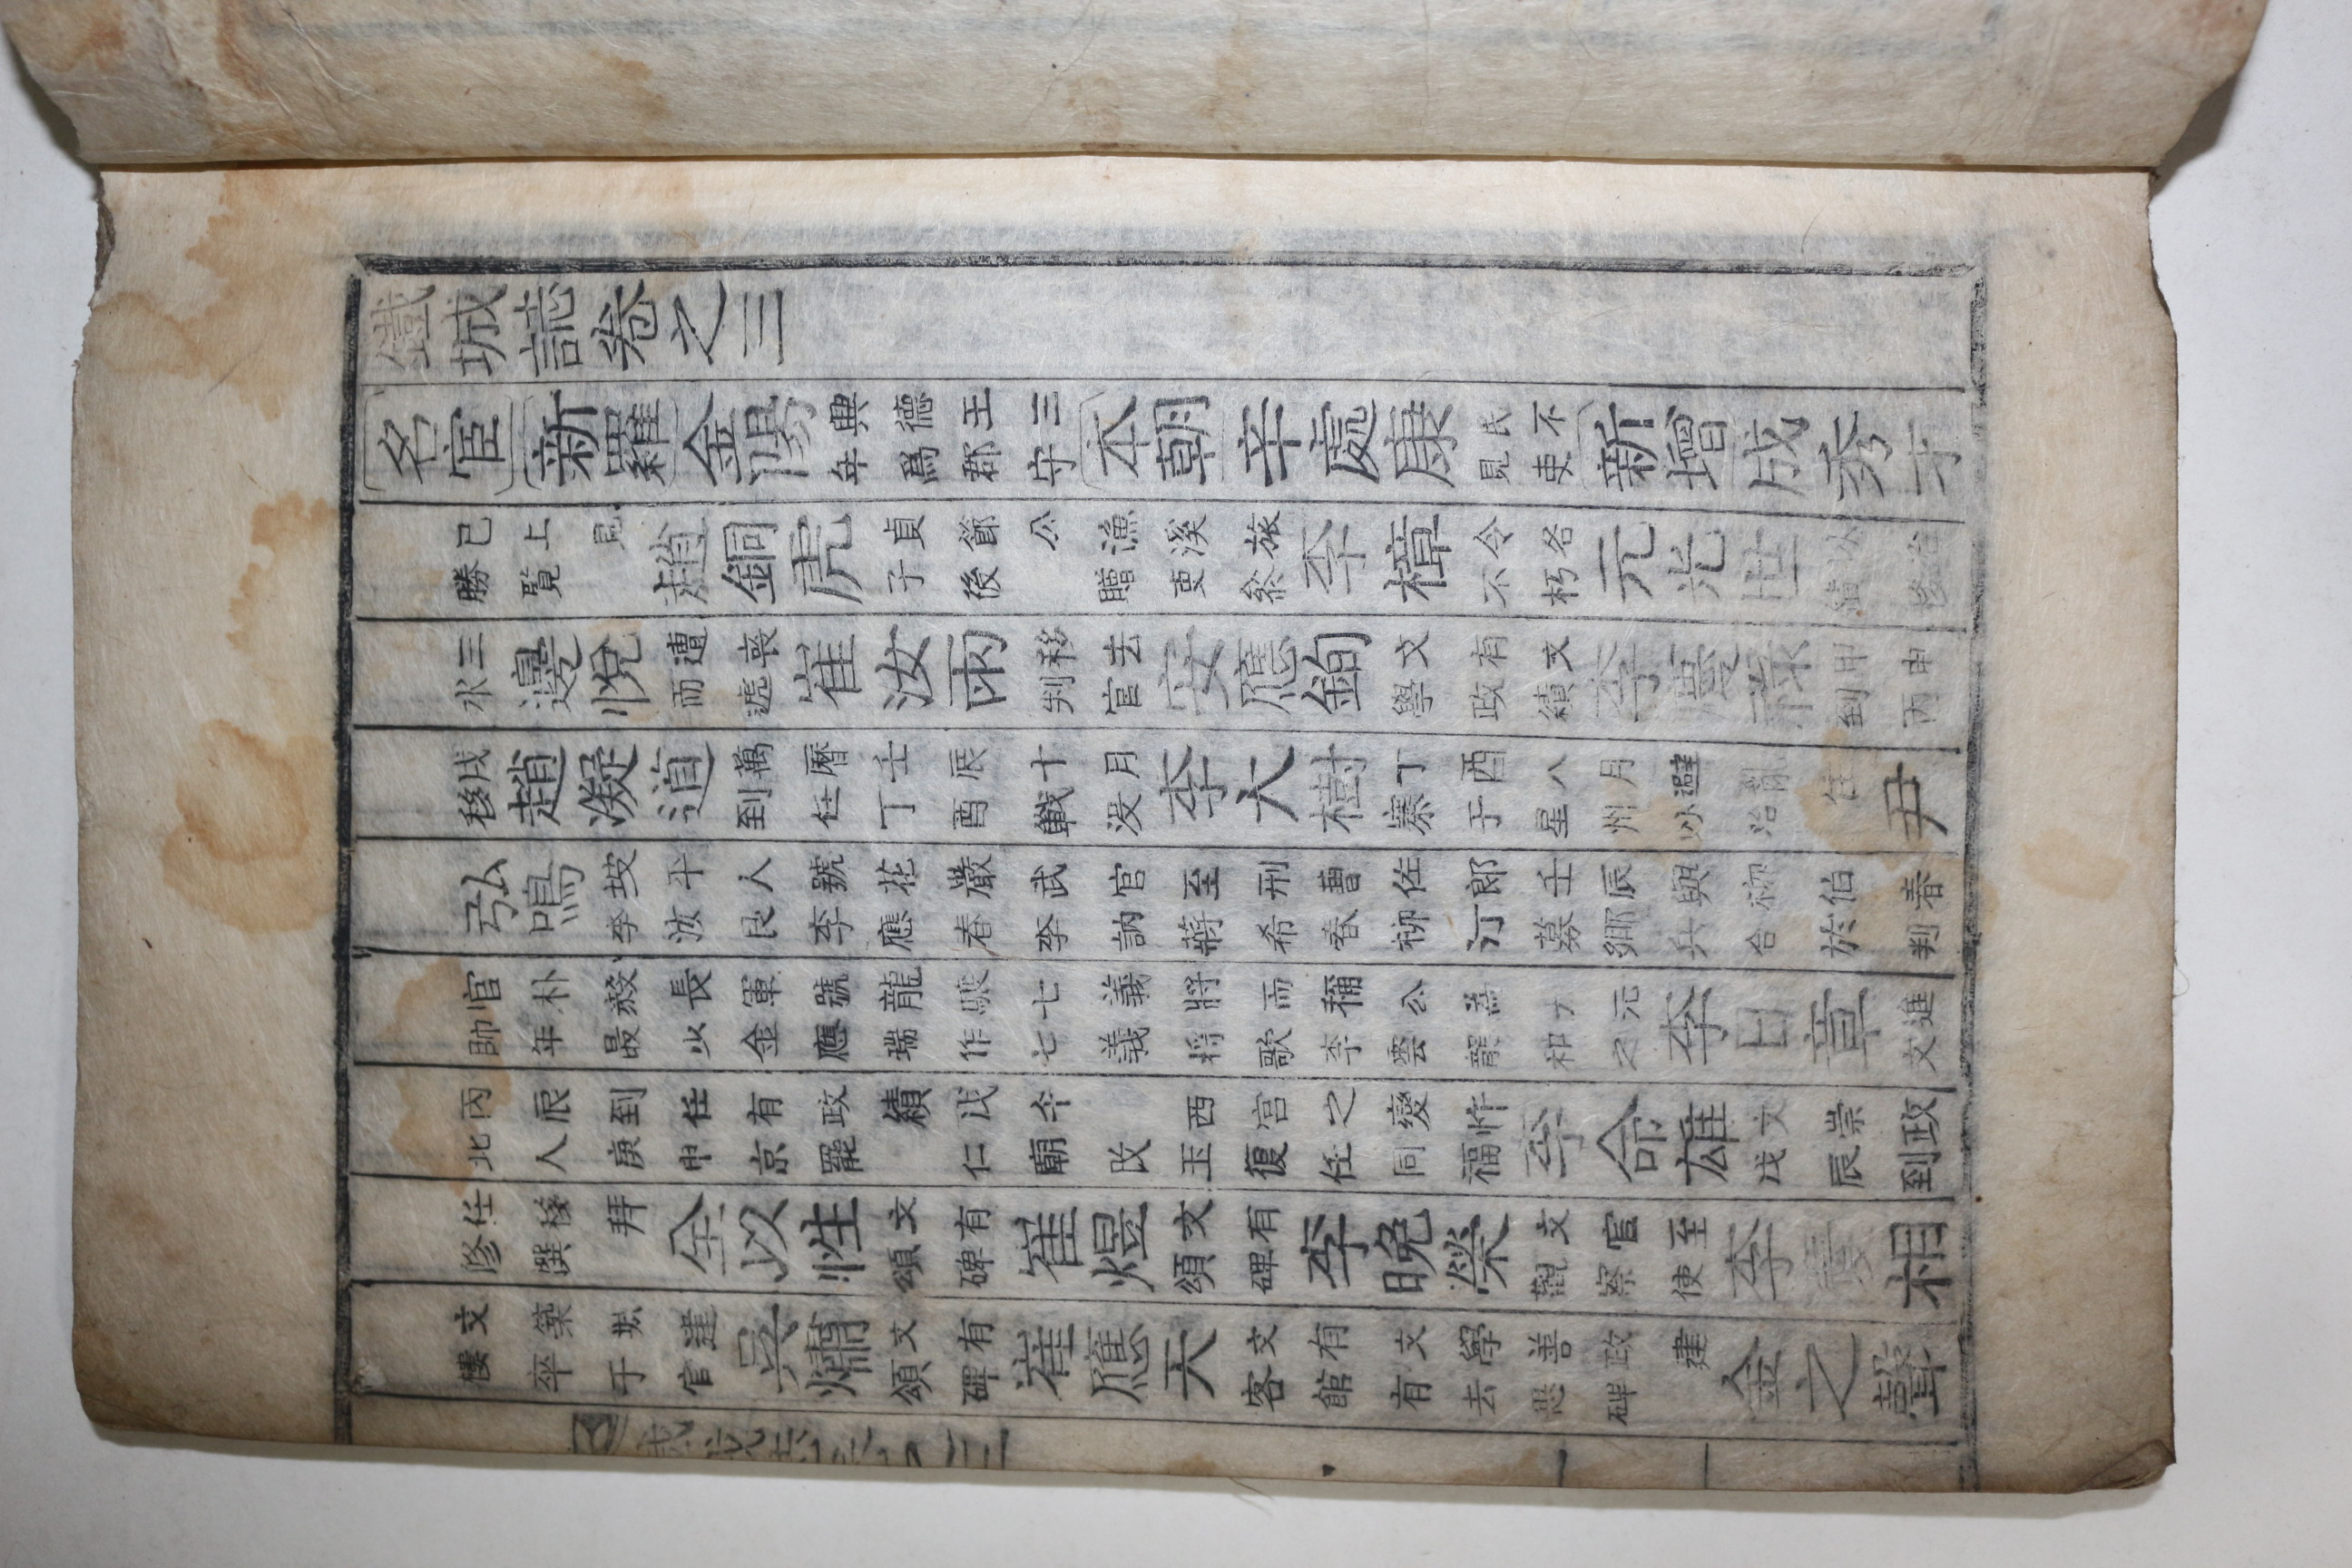 鐵城誌卷之三
名宦新羅金陽興德王三年爲郡守本朝辛處康民不見吏新增成秀才
已上見勝覽趙銅虎貞節公漁溪旅子後贈吏叅李樟令名不朽元光世以治績移
三水邊悅遭喪而遞崔汝雨移去判官安應鉤文有文學政績李慶祿甲申到丙
戌移趙凝道萬曆壬辰十月到任丁酉戰没李大樹丁酉八月避亂住寨于星州以治尹
弘鳴坡平人號花嚴武官至刑曹佐郎壬辰與柳伯春李汝良李應春李訥蔣希春柳汀募鄉兵合於判
官朴毅長軍號龍驤七義將而稱公為大元帥年最少金應瑞作七義將歌李雲龍和之李日章進文
丙辰到任有政績戊午西宮之變忤北人庚申京罷仁廟改玉復任同福李命雄文崇政戊辰到
任移拜修撰全以性文有頌碑崔煜文有頌碑李晚榮文官至觀察使李相
文築城建樓卒于官吳熽文有頌碑崔應天文有文學善政建客館有去思碑金之聲
鐵城誌卷之三